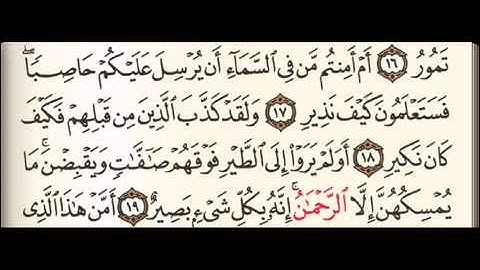 تَمُورُ ١٦ أَمْ أَمِنتُم مَّن فِى ٱلسَّمَآءِ أَن يُرْسِلَ عَلَيْكُمْ حَاصِبًا ۖ
فَسَتَعْلَمُونَ كَيْفَ نَذِيرِ ١٧ وَلَقَدْ كَذَّبَ ٱلَّذِينَ مِن قَبْلِهِمْ فَكَيْفَ
كَانَ نَكِيرِ ١٨ أَوَلَمْ يَرَوْا۟ إِلَى ٱلطَّيْرِ فَوْقَهُمْ صَٰٓفَّٰتٍ وَيَقْبِضْنَ ۚ مَا
يُمْسِكُهُنَّ إِلَّا ٱلرَّحْمَٰنُ ۚ إِنَّهُۥ بِكُلِّ شَىْءٍۭ بَصِيرٌ ١٩ أَمَّنْ هَٰذَا ٱلَّذِى